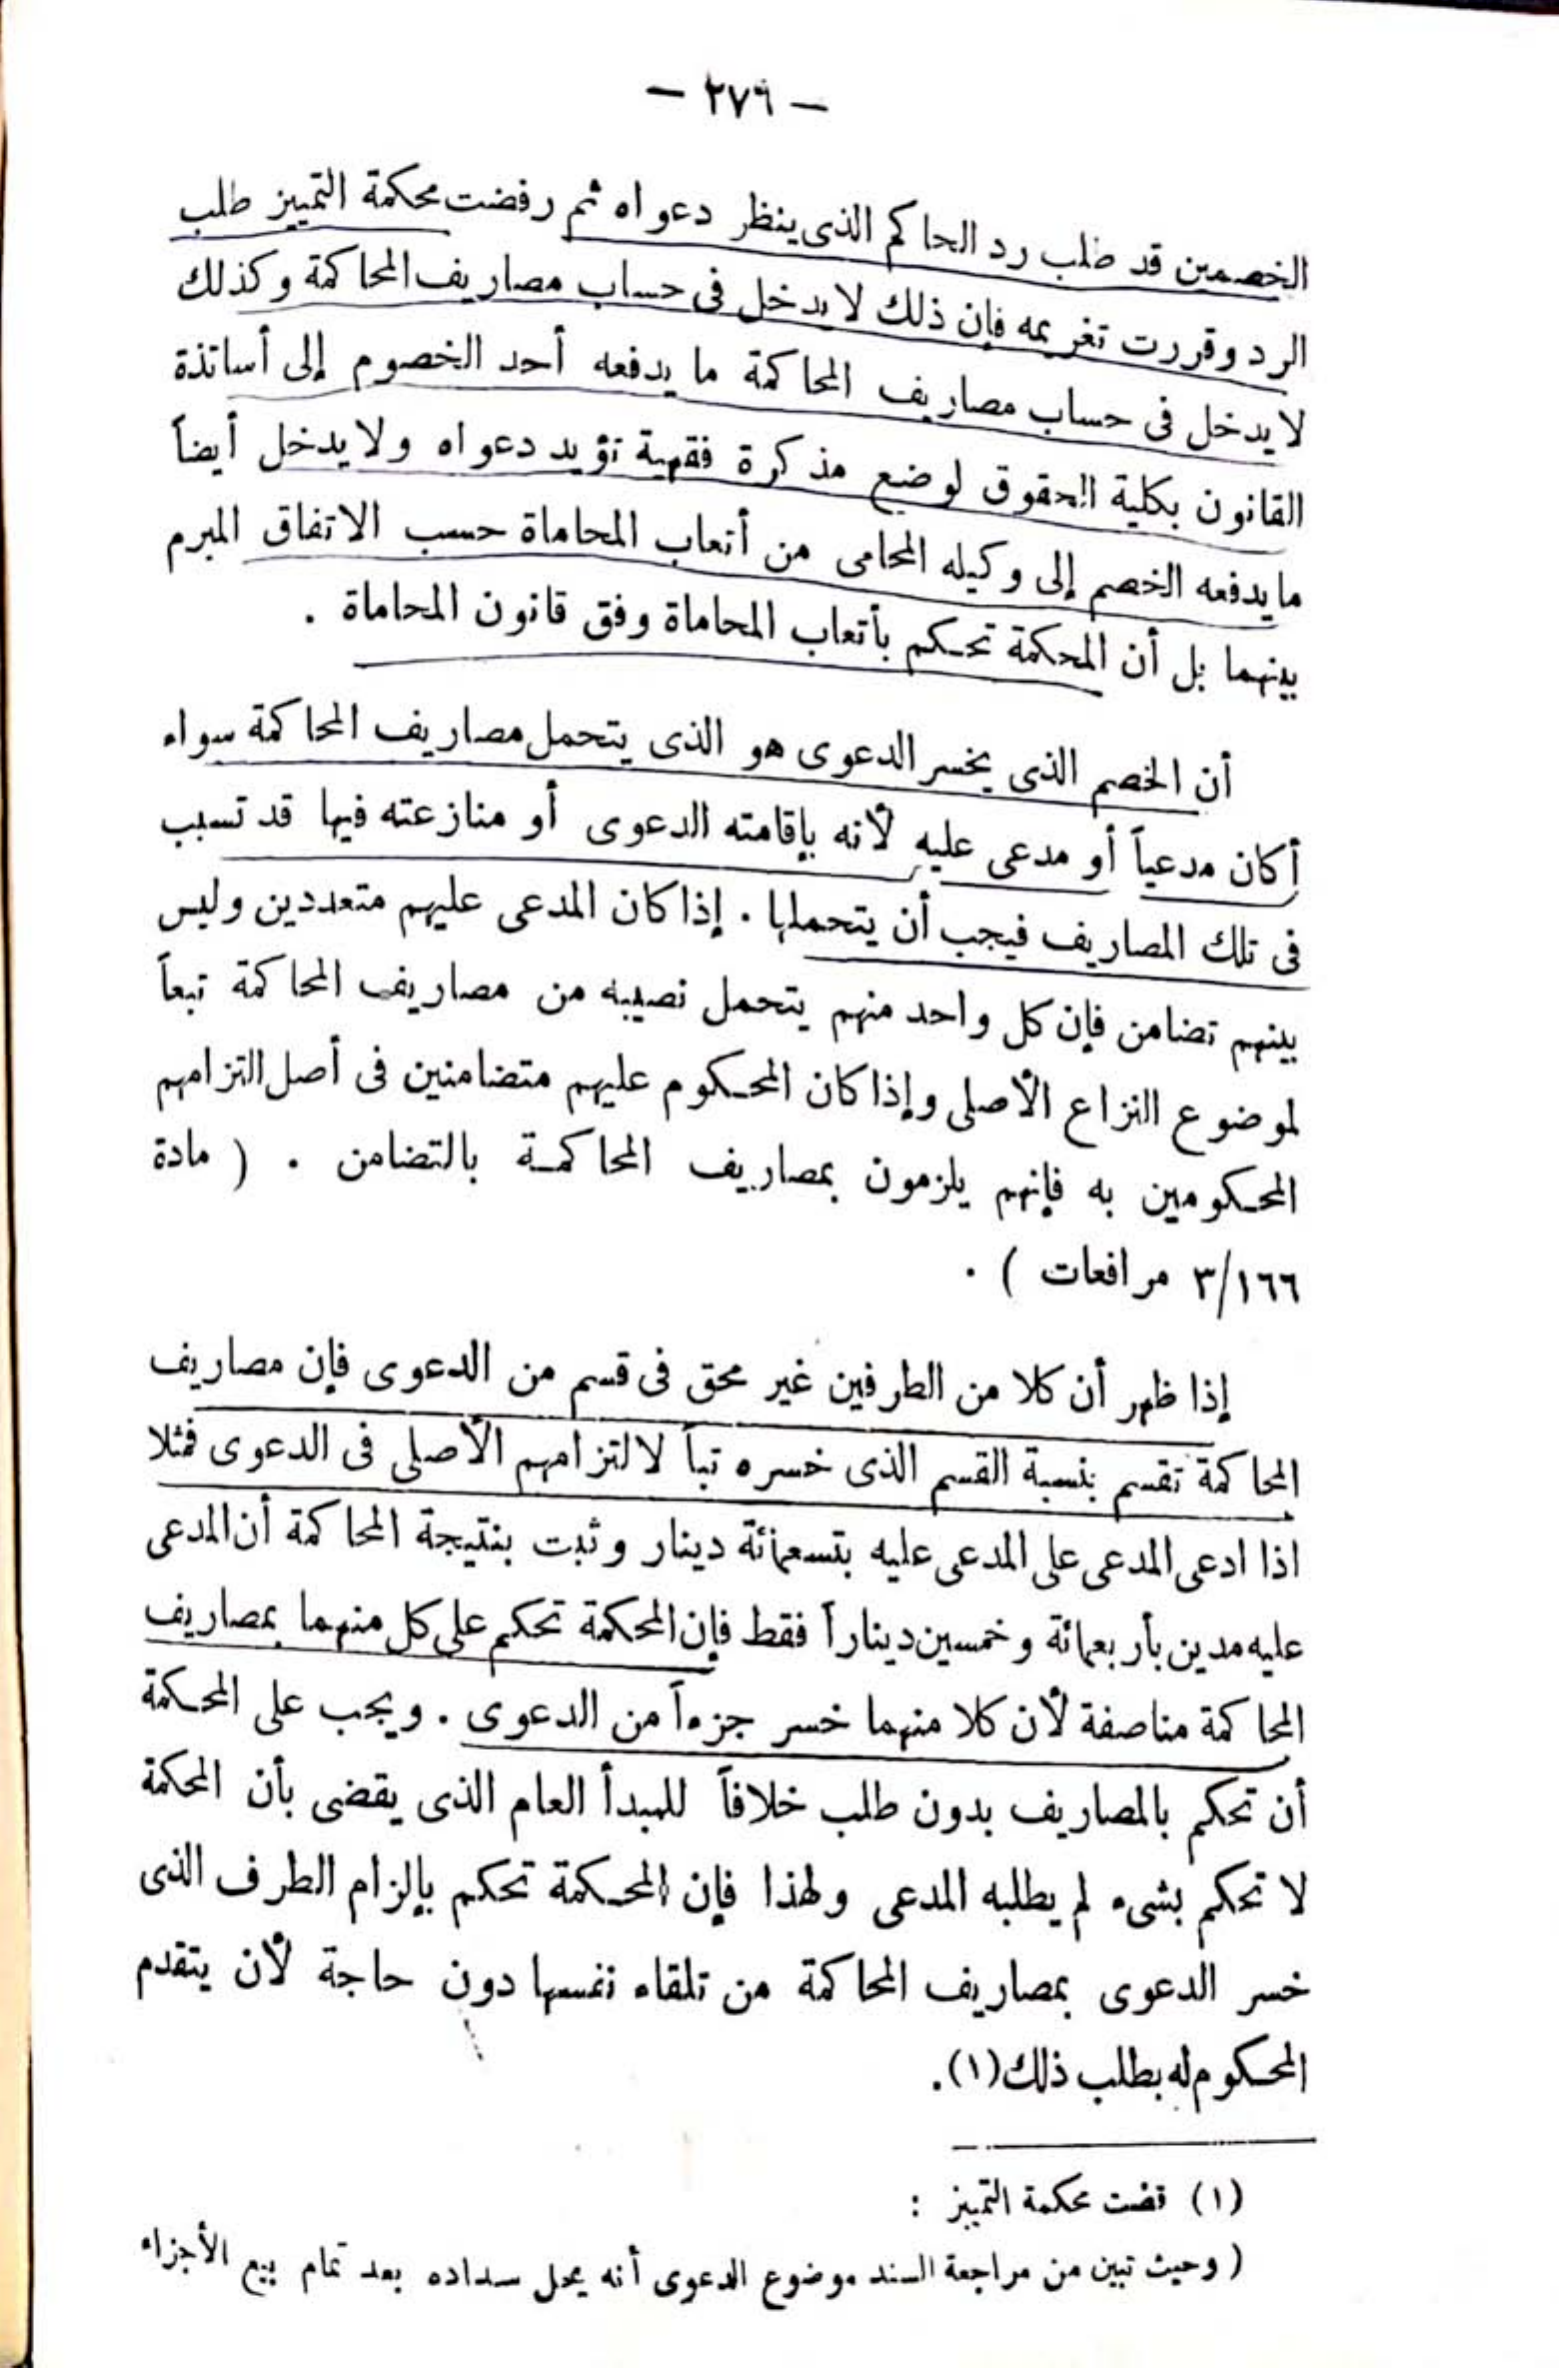 — ٢٧٦ —
الخصمين قد طلب رد الحاكم الذى ينظر دعواه ثم رفضت محكمة التمييز طلب
الرد وقررت تغريمه فإن ذلك لا يدخل فى حساب مصاريف المحاكمة وكذلك
لا يدخل فى حساب مصاريف المحاكمة ما يدفعه أحد الخصوم إلى أساتذة
القانون بكلية الحقوق لوضع مذكرة فقهية تؤيد دعواه ولا يدخل أيضاً
ما يدفعه الخصم إلى وكيله المحامى من أتعاب المحاماة حسب الاتفاق المبرم
بينهما بل أن المحكمة تحكم بأتعاب المحاماة وفق قانون المحاماة .
أن الخصم الذى يخسر الدعوى هو الذى يتحمل مصاريف المحاكمة سواء
أكان مدعياً أو مدعى عليه لأنه بإقامته الدعوى أو منازعته فيها قد تسبب
فى تلك المصاريف فيجب أن يتحملها . إذا كان المدعى عليهم متعددين وليس
بينهم تضامن فإن كل واحد منهم يتحمل نصيبه من مصاريف المحاكمة تبعاً
لموضوع النزاع الأصلى وإذا كان المحكوم عليهم متضامنين فى أصل التزامهم
المحكومين به فإنهم يلزمون بمصاريف المحاكمة بالتضامن . ( مادة
٣/١٦٦ مرافعات ) .
إذا ظهر أن كلا من الطرفين غير محق فى قسم من الدعوى فإن مصاريف
المحاكمة تقسم بنسبة القسم الذى خسره تبأ لالتزامهم الأصلى فى الدعوى فمثلا
اذا ادعى المدعى على المدعى عليه بتسعمائة دينار وثبت بنتيجة المحاكمة أن المدعى
عليه مدين بأربعمائة وخمسين ديناراً فقط فإن المحكمة تحكم على كل منهما بمصاريف
المحاكمة مناصفة لأن كلا منهما خسر جزءاً من الدعوى . ويجب على المحكمة
أن تحكم بالمصاريف بدون طلب خلافاً للمبدأ العام الذى يقضى بأن المحكمة
لا تحكم بشىء لم يطلبه المدعى ولهذا فإن المحكمة تحكم بإلزام الطرف الذى
خسر الدعوى بمصاريف المحاكمة من تلقاء نفسها دون حاجة لأن يتقدم
المحكوم له بطلب ذلك (١).
(١) قضت محكمة التمييز :
( وحيث تبين من مراجعة السند موضوع الدعوى أنه يحل سداده بعد تمام بيع الأجزاء